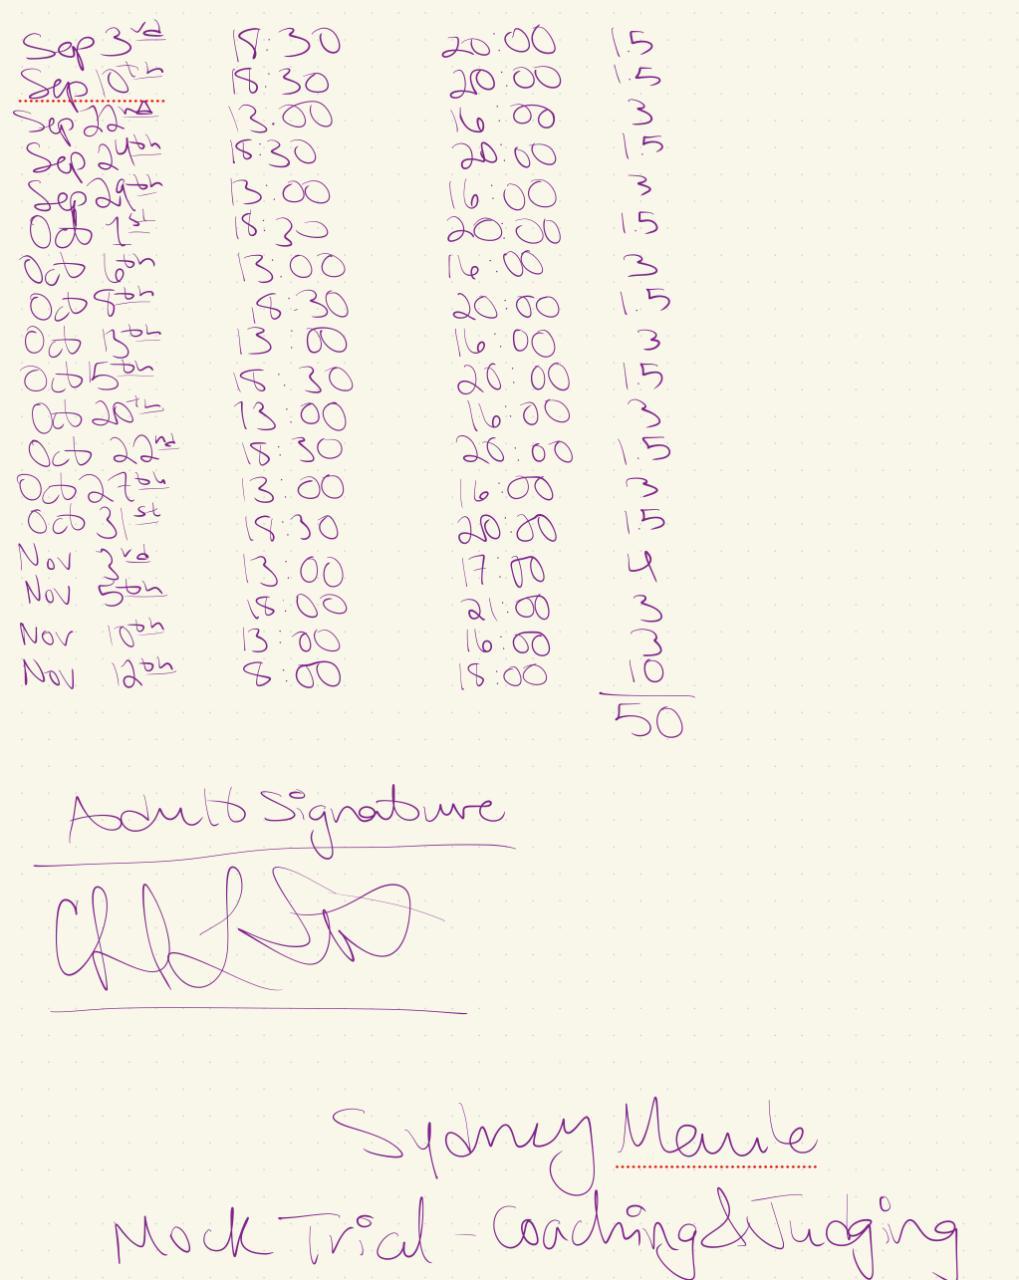 Sep 3rd 18:30 20:00 1.5
Sep 10th 18:30 20:00 1.5
Sep 22nd 13:00 16:00 3
Sep 24th 18:30 20:00 1.5
Sep 29th 13:00 16:00 3
Oct 1st 18:30 20:00 1.5
Oct 6th 13:00 16:00 3
Oct 8th 18:30 20:00 1.5
Oct 13th 13:00 16:00 3
Oct 15th 18:30 20:00 1.5
Oct 20th 13:00 16:00 3
Oct 22nd 18:30 20:00 1.5
Oct 27th 13:00 16:00 3
Oct 31st 18:30 20:00 1.5
Nov 3rd 13:00 17:00 4
Nov 5th 18:00 21:00 3
Nov 10th 13:00 16:00 3
Nov 12th 8:00 18:00 10
50
Adult Signature
Sydney
Mock Trial - Coaching & Judging